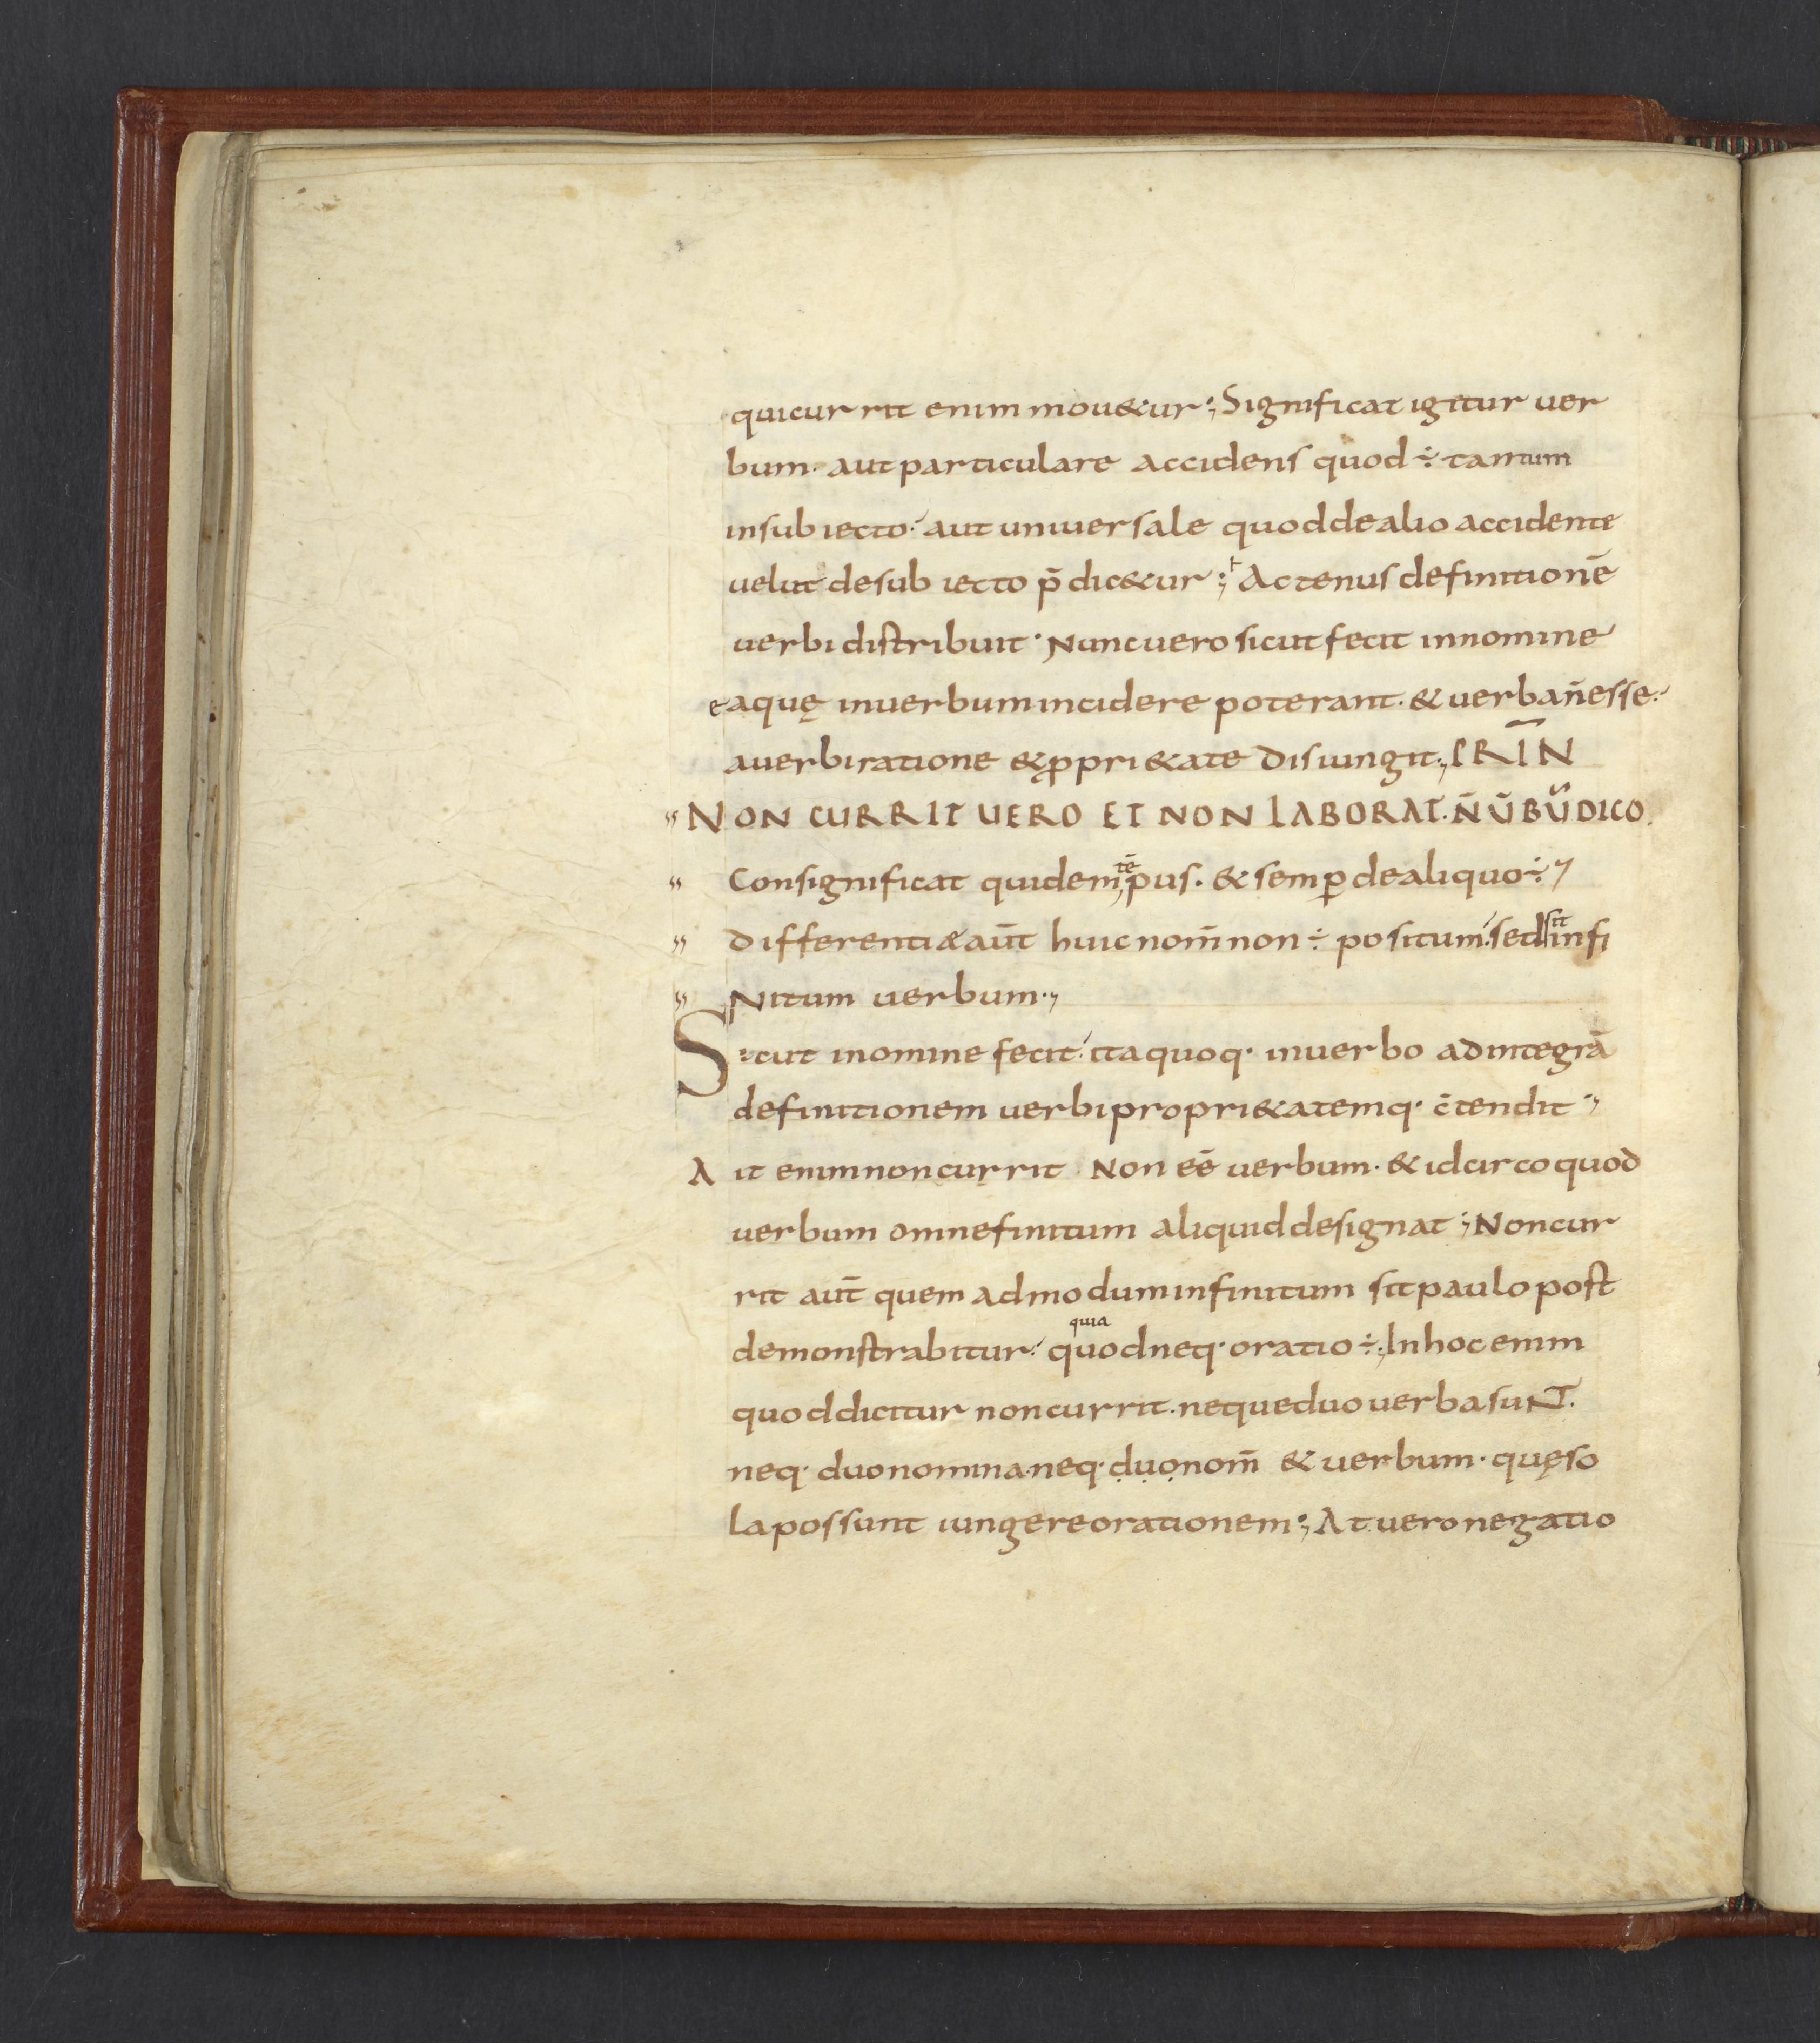 quicurrit enim mou&ur; Significat igitur uer
bum· aut particulare accidens quod ÷ tantum
insubiecto· aut uniuersale quod de alio accidente
uelut desubiecto p̄dic&ur; ⱶActenus definitionē
uerbi distribuit· Nunc uero sicut fecit innomine
eaquę inuerbum incidere poterant· & uerba n̄ esse·
auerbi ratione & ꝓpri&ate disiungit;
NON CURRIT UERO ET NON LABORAT· N̄ ŪBŪ DICO.
Consignificat quidem tē pus· & semꝑ dealiquo ÷;
differentiae aūt huic nom̄ non ÷ positum· sed sit infi
Nitum uerbum·,
Sicut inomine fecit· ita quoq· inuerbo adintegrā
definitionem uerbi propri&atemq· c̄tendit·,
Ait enim noncurrit Non eē uerbum· & idcirco quod
uerbum omne finitum aliquid designat; Noncur
rit aūt quem admodum infinitum sit paulo post
demonstrabitur· quia quod neq· oratio ÷; Inhoc enim
quod dicitur noncurrit· neque duo uerba suNT.
neq· duo nomina· neq· duo nom̄ & uerbum· quęso
la possunt iungere orationem; At uero negatio